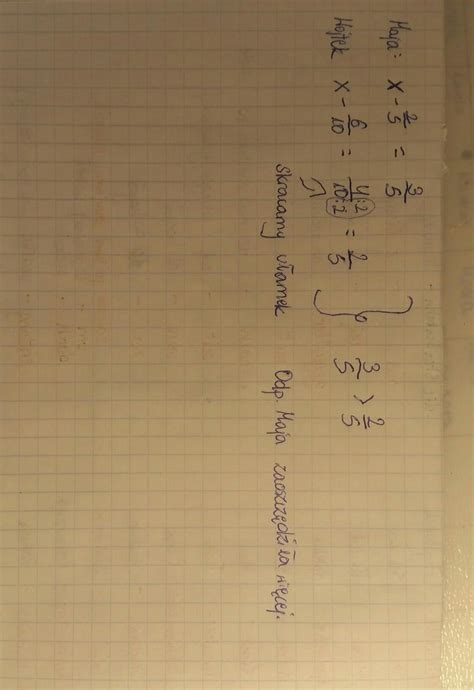 Maja: x - 2/5 = 3/5
Wojtek x - 6/10 = 4:2/10:2 = 2/5 } 3/5 > 2/5
Skracamy ułamek
Odp. Maja zaoszczędziła więcej.